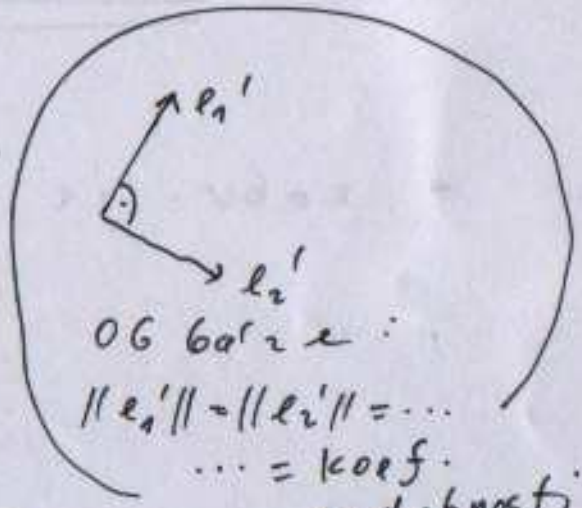 e₁'
e₂'
OG báze :
||e₁'|| = ||e₂'|| = ...
... = koef.